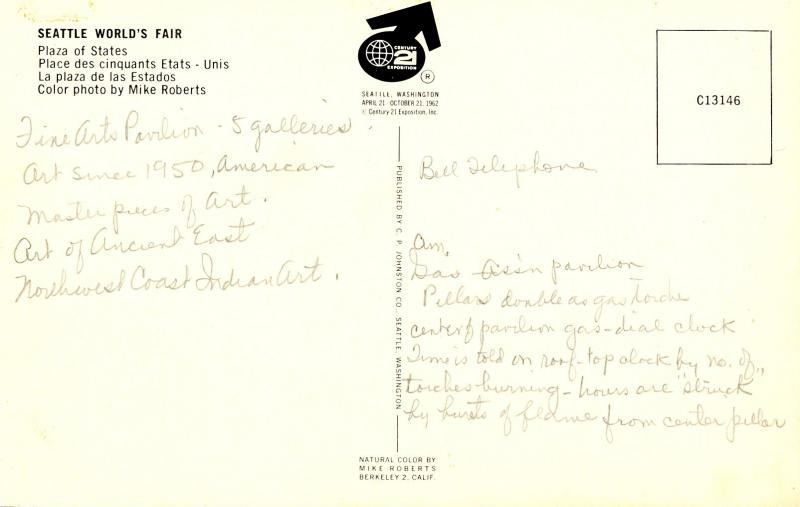 SEATTLE WORLD'S FAIR
Plaza of States
Place des cinquants Etats - Unis
La plaza de las Estados
Color photo by Mike Roberts
CENTURY
21
EXPOSITION
®
SEATTLE, WASHINGTON
APRIL 21 - OCTOBER 21, 1962
© Century 21 Exposition, Inc.
C13146
Fine Arts Pavilion - 5 galleries.
Art since 1950, American
Masterpieces of Art.
Art of Ancient East
Northwest Coast Indian Art.
PUBLISHED BY C. P. JOHNSTON CO., SEATTLE, WASHINGTON
Bell Telephone
Am.
Gas Ass'n pavilion
Pillars double as gas torche
center of pavilion gas-dial clock
Time is told on roof-top clock by no. of
torches burning - hours are "struck"
by bursts of flame from center pillar
NATURAL COLOR BY
MIKE ROBERTS
BERKELEY 2, CALIF.